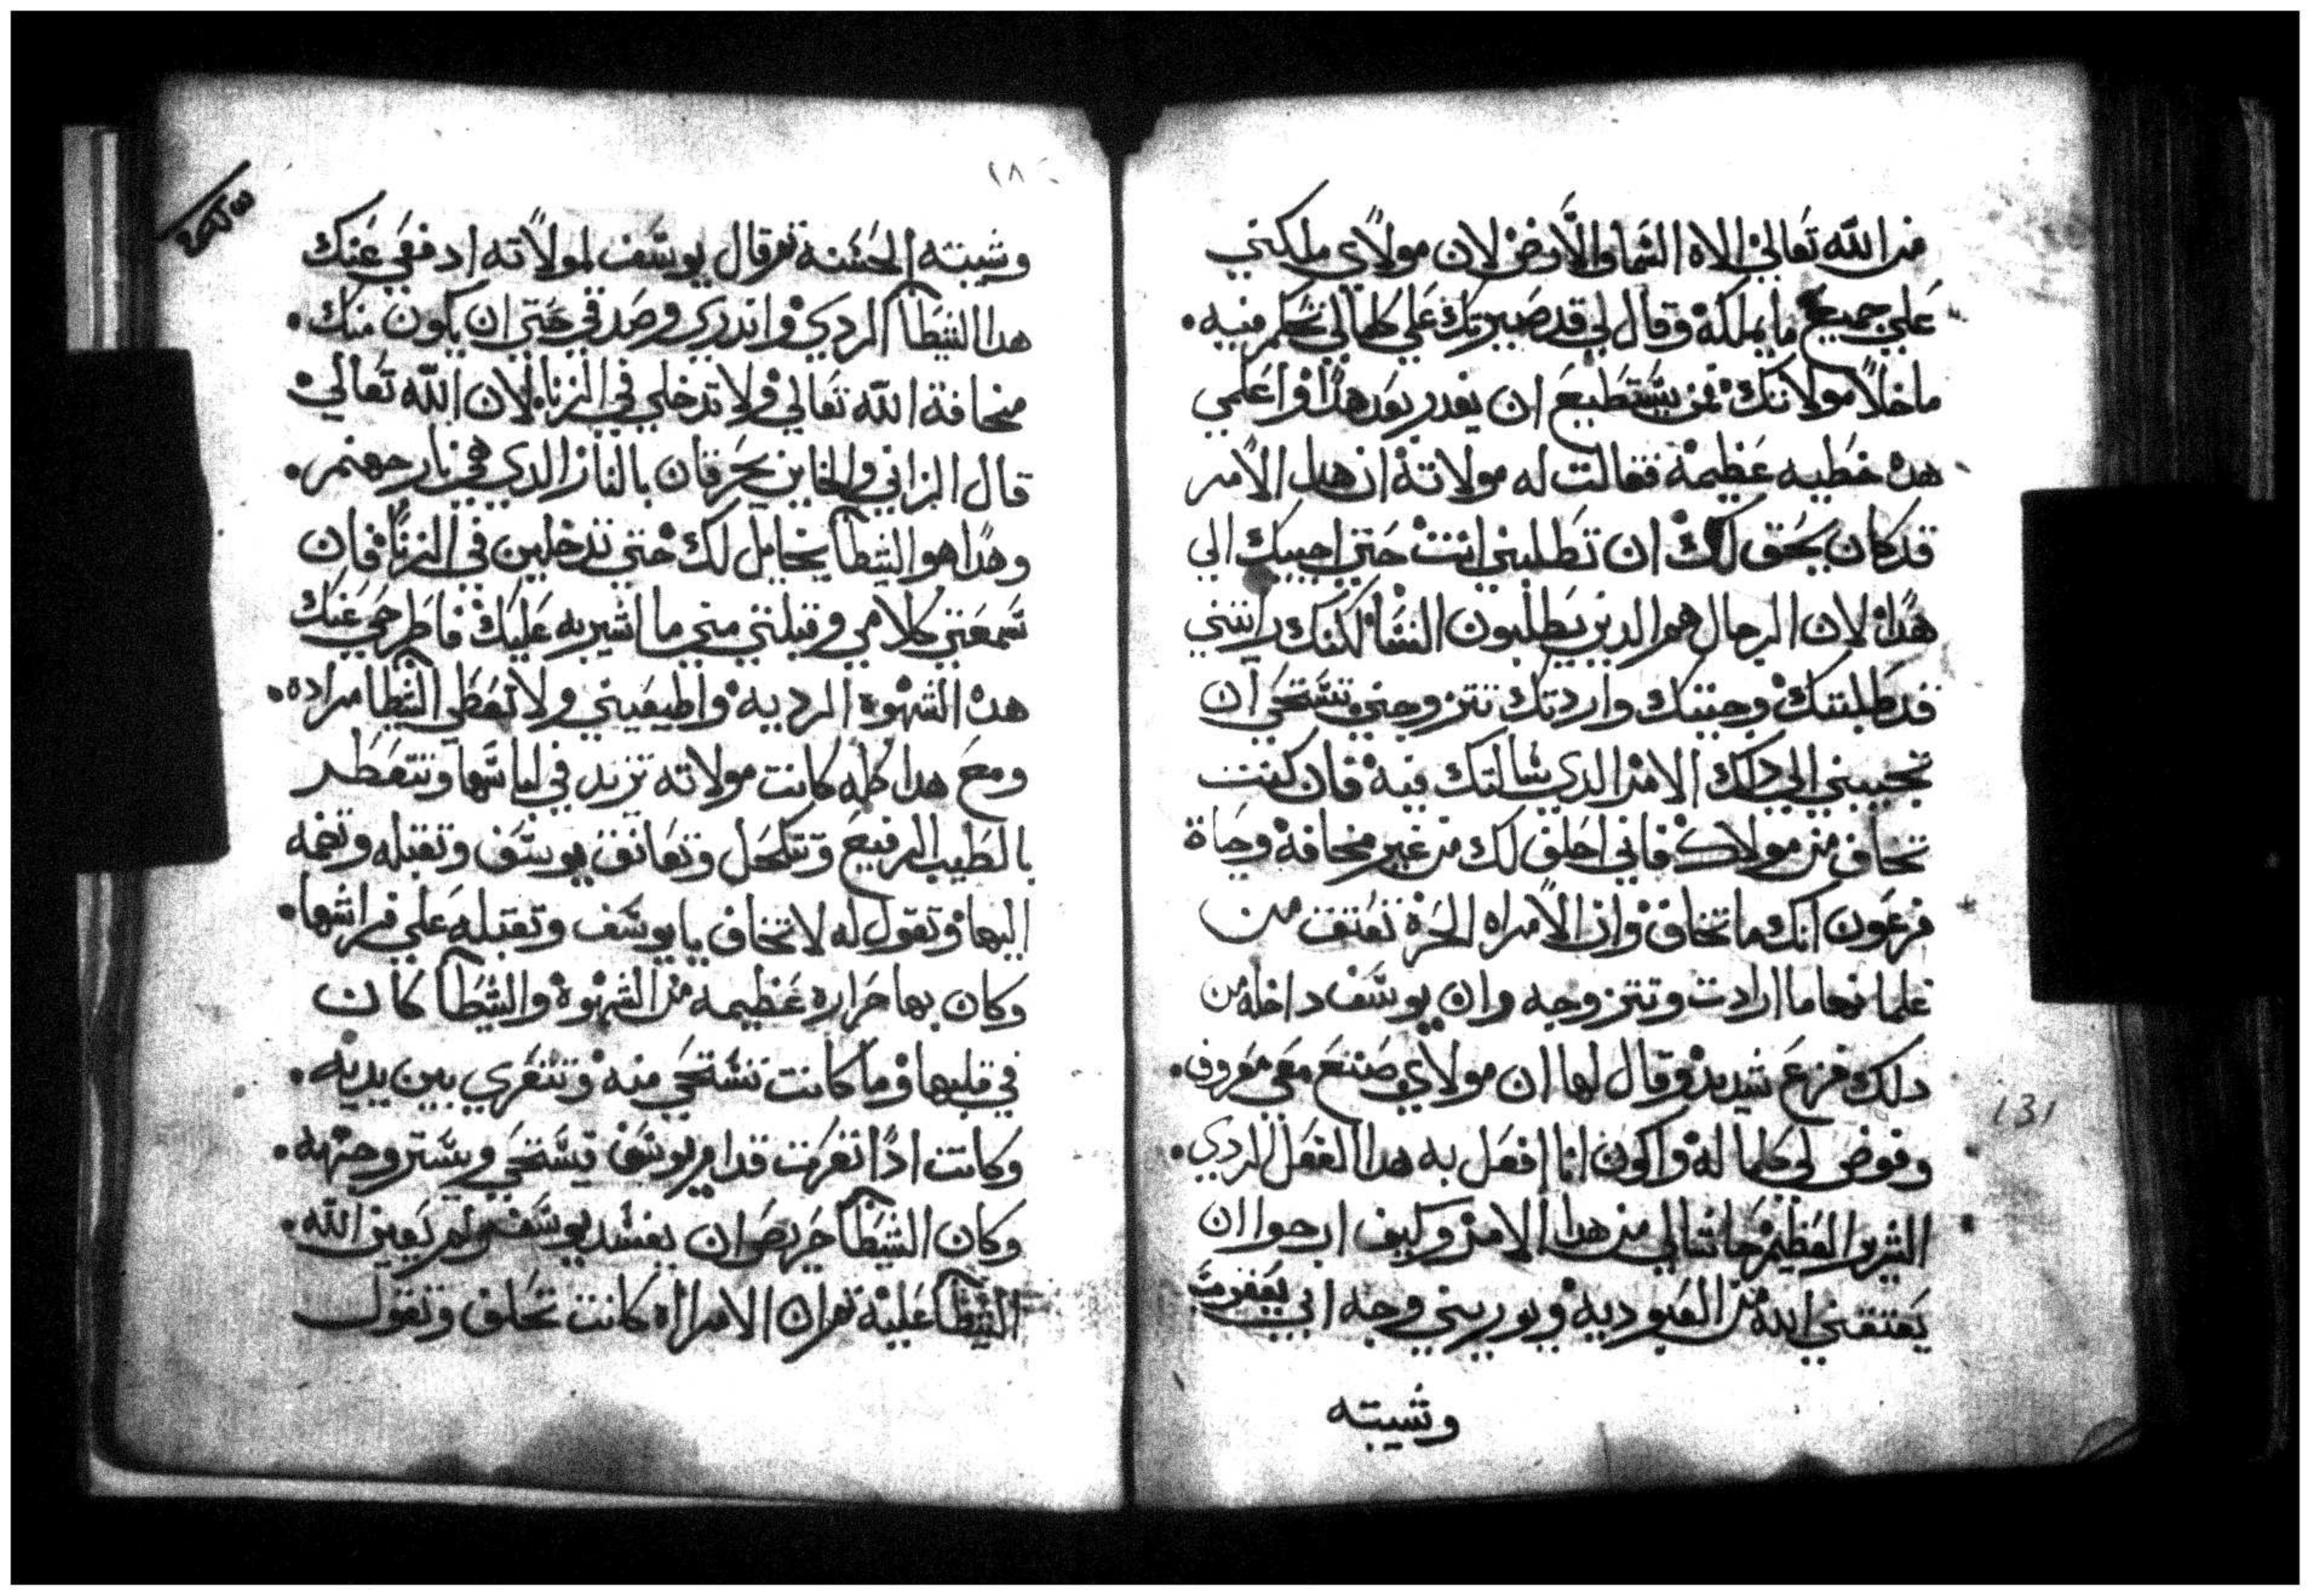 من الله تعالي الاه السما والارض لان مولاي ملكني
علي جميع ما يملكه وقال لي قد صيرتك علي كلمالي تحكم فيه.
ما خلا مولاتك فمن يستطيع ان يغدر بعد هدا واعلمي
هده خطيه عظيمه فقالت له مولاته ان هدا الامر
قد كان يحق لك ان تطلبني انت حتي اجيبك الي
هدا لان الرجال هم الدين يطلبون النسا لكنك رايتني
قد طلبتك وجيتك واردتك تتزوجني تستحي ان
تجيبني الي دلك الامر الدي سالتك فيه فان كنت
تخاف من مولاك فاني احلف لك من غير مخافه وحياة
فرعون انك ما تخاف وان الامراه الحره تعتق من
غلمانها ما ارادت وتتزوجه وان يوسف داخله من
دلك فزع شديد وقال لها ان مولاي صنع معي معروف.
وفوض لي كلما له واكون انا افعل به هدا الفعل الردي.
الشرير العظيم حاشا لي من هدا الامر وكيف ارجوا ان
يعتقني الله من العبوديه ويوريني وجه ابي يعقوب
وشيبته
١٣١
١٨
وشيبته الحسنه تم قال يوسف لمولاته ادفعي عنك
هدا الشيطا الردي واندري وصدقي حتي ان يكون منك.
مخافة الله تعالي ولا تدخلي في الزنا لان الله تعالي
قال الزاني والخاين يحرقان بالنار الدي في نار جهنم.
وهدا هو الشيطا يخايل لك حتي تدخلين في الزنا فان
سمعتي كلامي وقبلتي مني ما اشير به عليك فاطرحي عنك
هده الشهوه الرديه واطيعيني ولا تعطي الشيطا مراده.
ومع هدا كله كانت مولاته تزيد في لباسها وتتعطر
بالطيب الرفيع وتتكحل وتعانق يوسف وتقبله وتضمه
اليها وتقول له لا تخاف يا يوسف وتقبله علي فراشها.
وكان بها حراره عظيمه من الشهوه والشيطا كان
في قلبها وما كانت تستحي منه وتتعري بين يديه.
وكانت ادا تعرت قدام يوسف يستحي ويستر وجهه.
وكان الشيطا حريص ان يفسد يوسف ولم يعين الله.
الشيطا عليه تم ان الامراه كانت تحلف وتقول